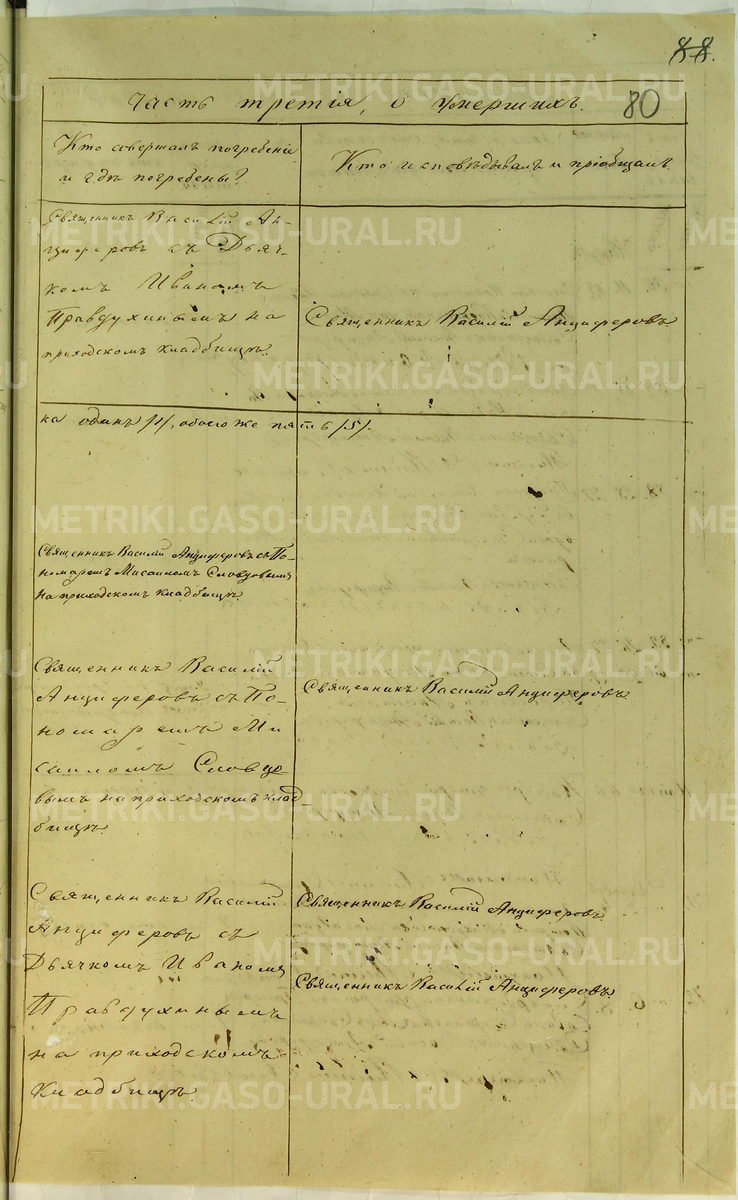 88.
Часть третія, о умершихъ.
80
Кто совершалъ погребеніе
и гдѣ погребены?
Кто исповѣдывалъ и пріобщалъ
Священникъ Василій Ан-
циферовъ съ Дьяч-
комъ Иваномъ
Правдухинымъ на
приходскомъ кладбищѣ.
Священникъ Василій Анциферовъ
ка одинъ /1/, обоего же пять /5/.
Священникъ Василій Анциферовъ съ По-
номаремъ Мисаиломъ Словцовымъ
на приходскомъ кладбищѣ.
Священникъ Василій
Анциферовъ съ По-
номаремъ Ми
саиломъ Словцо-
вымъ на приходскомъ клад-
бищѣ.
Священникъ Василій Анциферовъ
Священникъ Василій
Анциферовъ съ
Дьячкомъ Иваномъ
Правдухинымъ
на приходскомъ
кладбищѣ.
Священникъ Василій Анциферовъ
Священникъ Василій Анциферовъ
METRIKI.GASO-URAL.RU